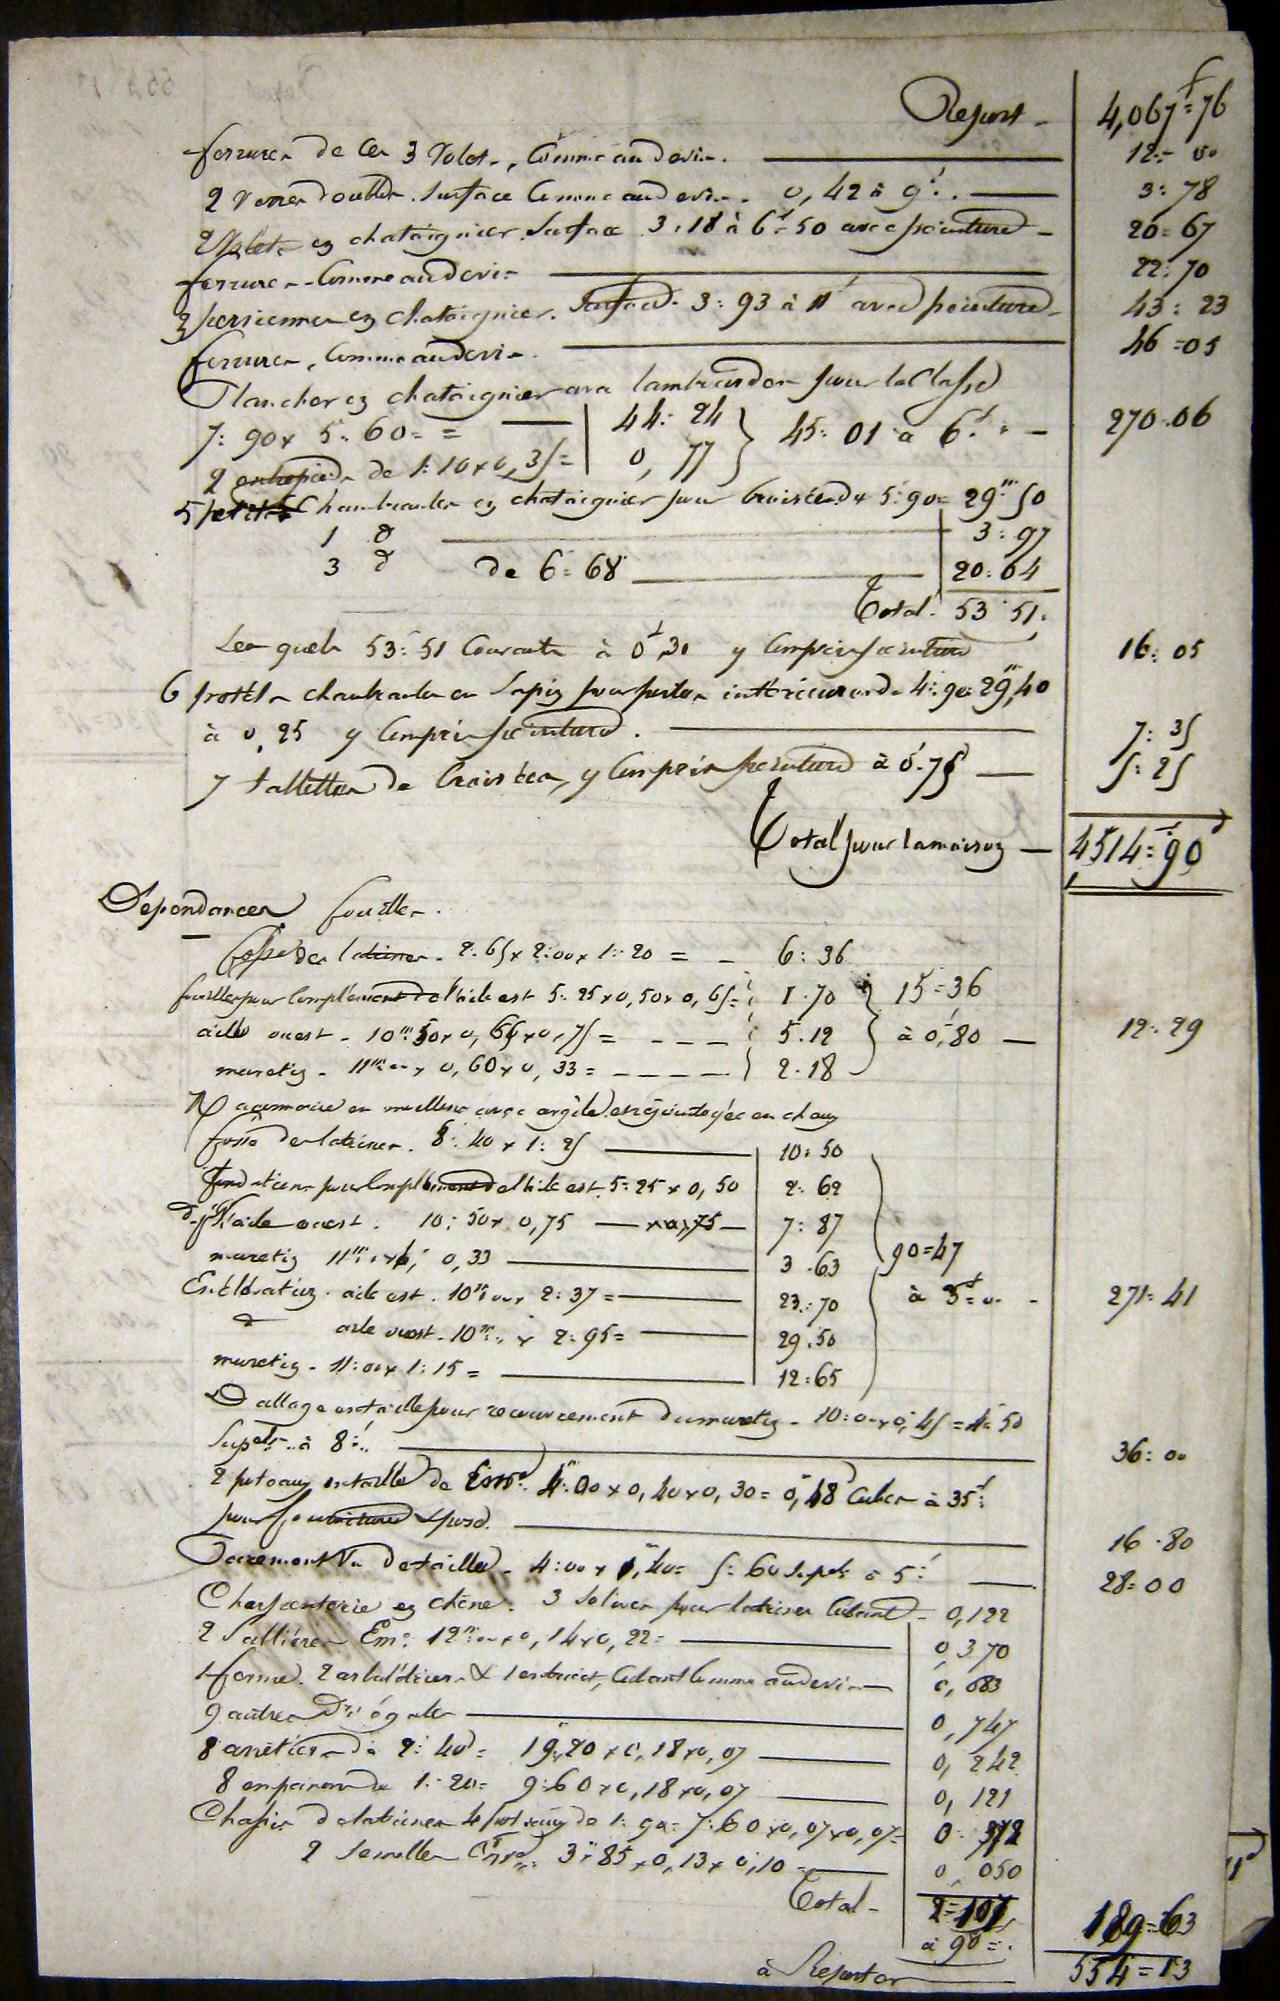 Report - 4,067f=76
ferrures de ces 3 Volets, Comme au devis. 12=00
2 verres doubles. Surface Comme au devis. 0,42 à 9f. 3=78
2 Volets en chataignier. Surface 3:18 à 6f=50 avec peinture - 20=67
ferrures - Comme au devis 22=70
3 persiennes en chataignier. Surface. 3:93 à 11f avec peinture - 43:23
ferrures, Comme au devis. 46=05
Plancher en chataignier avec lambourdes pour la Classe
7:90 x 5:60 = 44:24 } 45:01 à 6f. - 270.06
2 de 1:10 x 0,35 = 0,77
5 Chambranles en chataignier pour Croisées de 5:90 = 29m50
1 d 3:97
3 d de 6:68 20:04
Total. 53:51.
Les quels 53:51 Courants à 0f30 y Compris peinture 16:05
6 petits chambranles en Sapin pour portes intérieures de 4:90 = 29m,40
à 0,25 y Compris peinture. 7:35
7 tablettes de Croisées, y Compris peinture à 0f.75 5:25
Total pour la maison - 4,514f=90
Dépendances fouilles.
fosse des latrines. 2:65 x 2:00 x 1:20 = - 6:36
fouilles pour Complément de l'aile est 5:25 x 0,50 x 0,65 = 1.70 } 15=36
aile ouest - 10m50 x 0,65 x 0,75 = 5.12 } à 0f,80 - 12:29
muretin - 11m00 x 0,60 x 0,33 = 2.18
Maçonnerie en moellons avec argile et rejointoyée en chaux
fosse des latrines. 8:40 x 1:25 10:50
fondations pour Complément de l'aile est. 5:25 x 0,50 2:62
d° p. l'aile ouest. 10:50 x 0,75 7:87
muretin 11m00 x 0,33 3.63 90=47
En Elévation. aile est. 10m00 x 2:37 = 23:70 à 3f=00 - 271:41
d aile ouest. 10m x 2:95 = 29.50
muretin - 11:00 x 1:15 = 12:65
Dallage en taille pour recouvrement du muretin - 10:00 x 0,45 = 4=50
Superf. à 8f. 36:00
2 poteaux en taille de Ensemble 4:00 x 0,40 x 0,30 = 0,48 Cubes à 35f
pour fourniture & pose. 16.80
Parement Vu de taille - 4:00 x 1,40 = 5:60 superf. à 5f 28=00
Charpenterie en chêne. 3 Solives pour latrines Cubant - 0,122
2 Sablières Em. 12m00 x 0,14 x 0,22 = 0,370
1 ferme. 2 arbalétriers & 1 entrait, Cubant Comme au devis - 0,083
9 autres d° égales 0,747
8 arêtiers de 2:40 = 19,20 x 0,18 x 0,07 0,242
8 empanons de 1:20 = 9:60 x 0,18 x 0,07 0,121
Chassis de latrines 4 poteaux de 1:90 = 7:60 x 0,07 x 0,07 = 0.372
2 Semelles Ens. 3:85 x 0,13 x 0,10 - 0,050
Total - 2=107
à 90=. 189=63
à Reporter 554=13